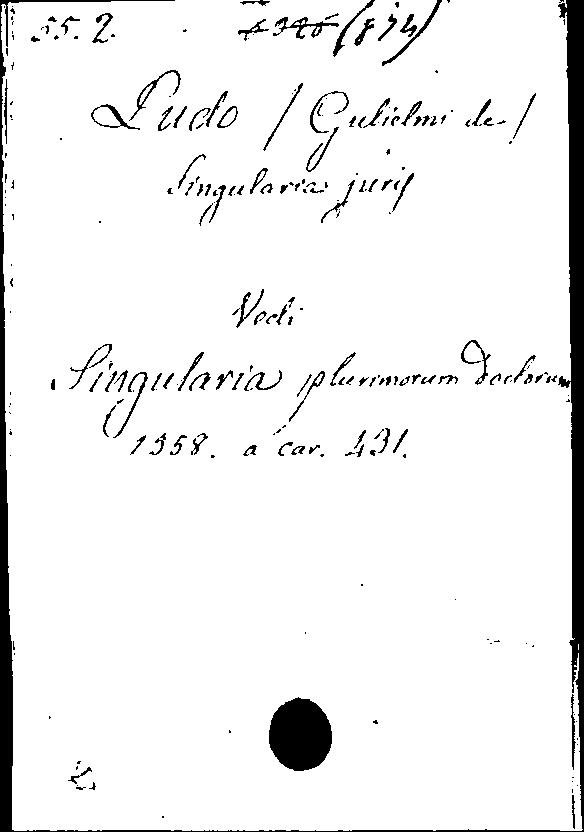 55. 2. 4346 (874)
Ludo / Gulielmi de /
Singularia juris
Vedi
Singularia plurimorum Doctorum
1558. a car. 431.